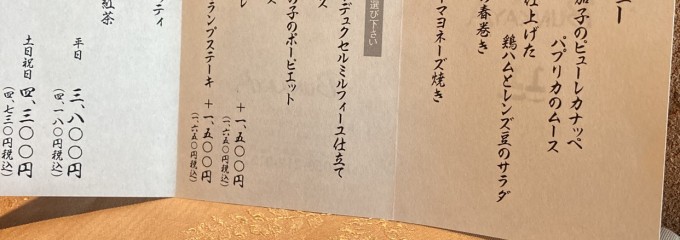 ニュー
茄子のピューレカナッペ
パプリカのムース
仕上げた
鶏ハムとレンズ豆のサラダ
の春巻き
マヨネーズ焼き
選び下さい
デュクセルミルフィーユ仕立て
ス
の子のポーピエット
ス
レ
＋一、五〇〇円
(一、六五〇円税込)
ランプステーキ
＋一、五〇〇円
(一、六五〇円税込)
ティ
紅茶
平日 三、八〇〇円
(四、一八〇円税込)
土日祝日 四、三〇〇円
(四、七三〇円税込)